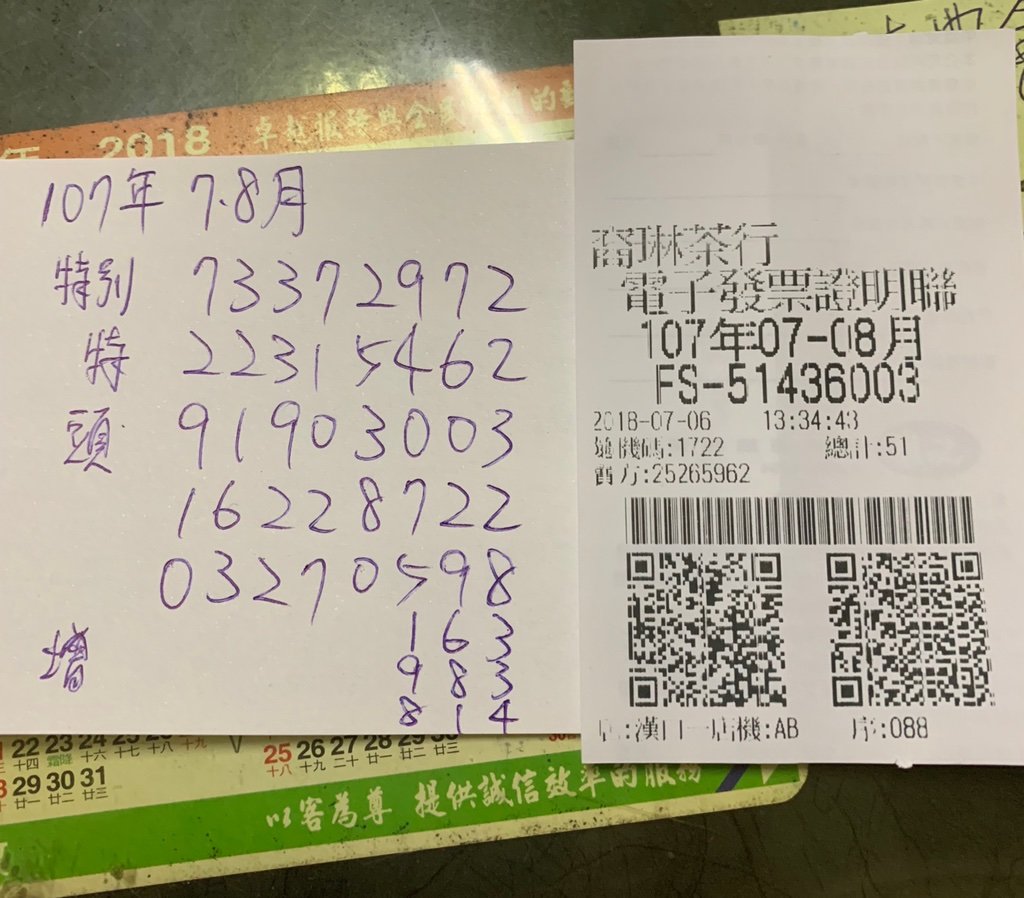 2018 卓越服務與全
107年 7.8月
特別 73372972
特 22315462
頭 91903003
16228722
03270598
163
增 983
814
22 23 24
十四 霜降 十六 十七 十八 十九
29 30 31
廿一 廿二 廿三
25 26 27 28 29 30
十八 十九 二十 廿一 廿二 廿三
以客為尊 提供誠信效率的服務
喬琳茶行
電子發票證明聯
107年07-08月
FS-51436003
2018-07-06 13:34:43
隨機碼:1722 總計:51
賣方:25265962
店:漢口一店機:AB 序:088